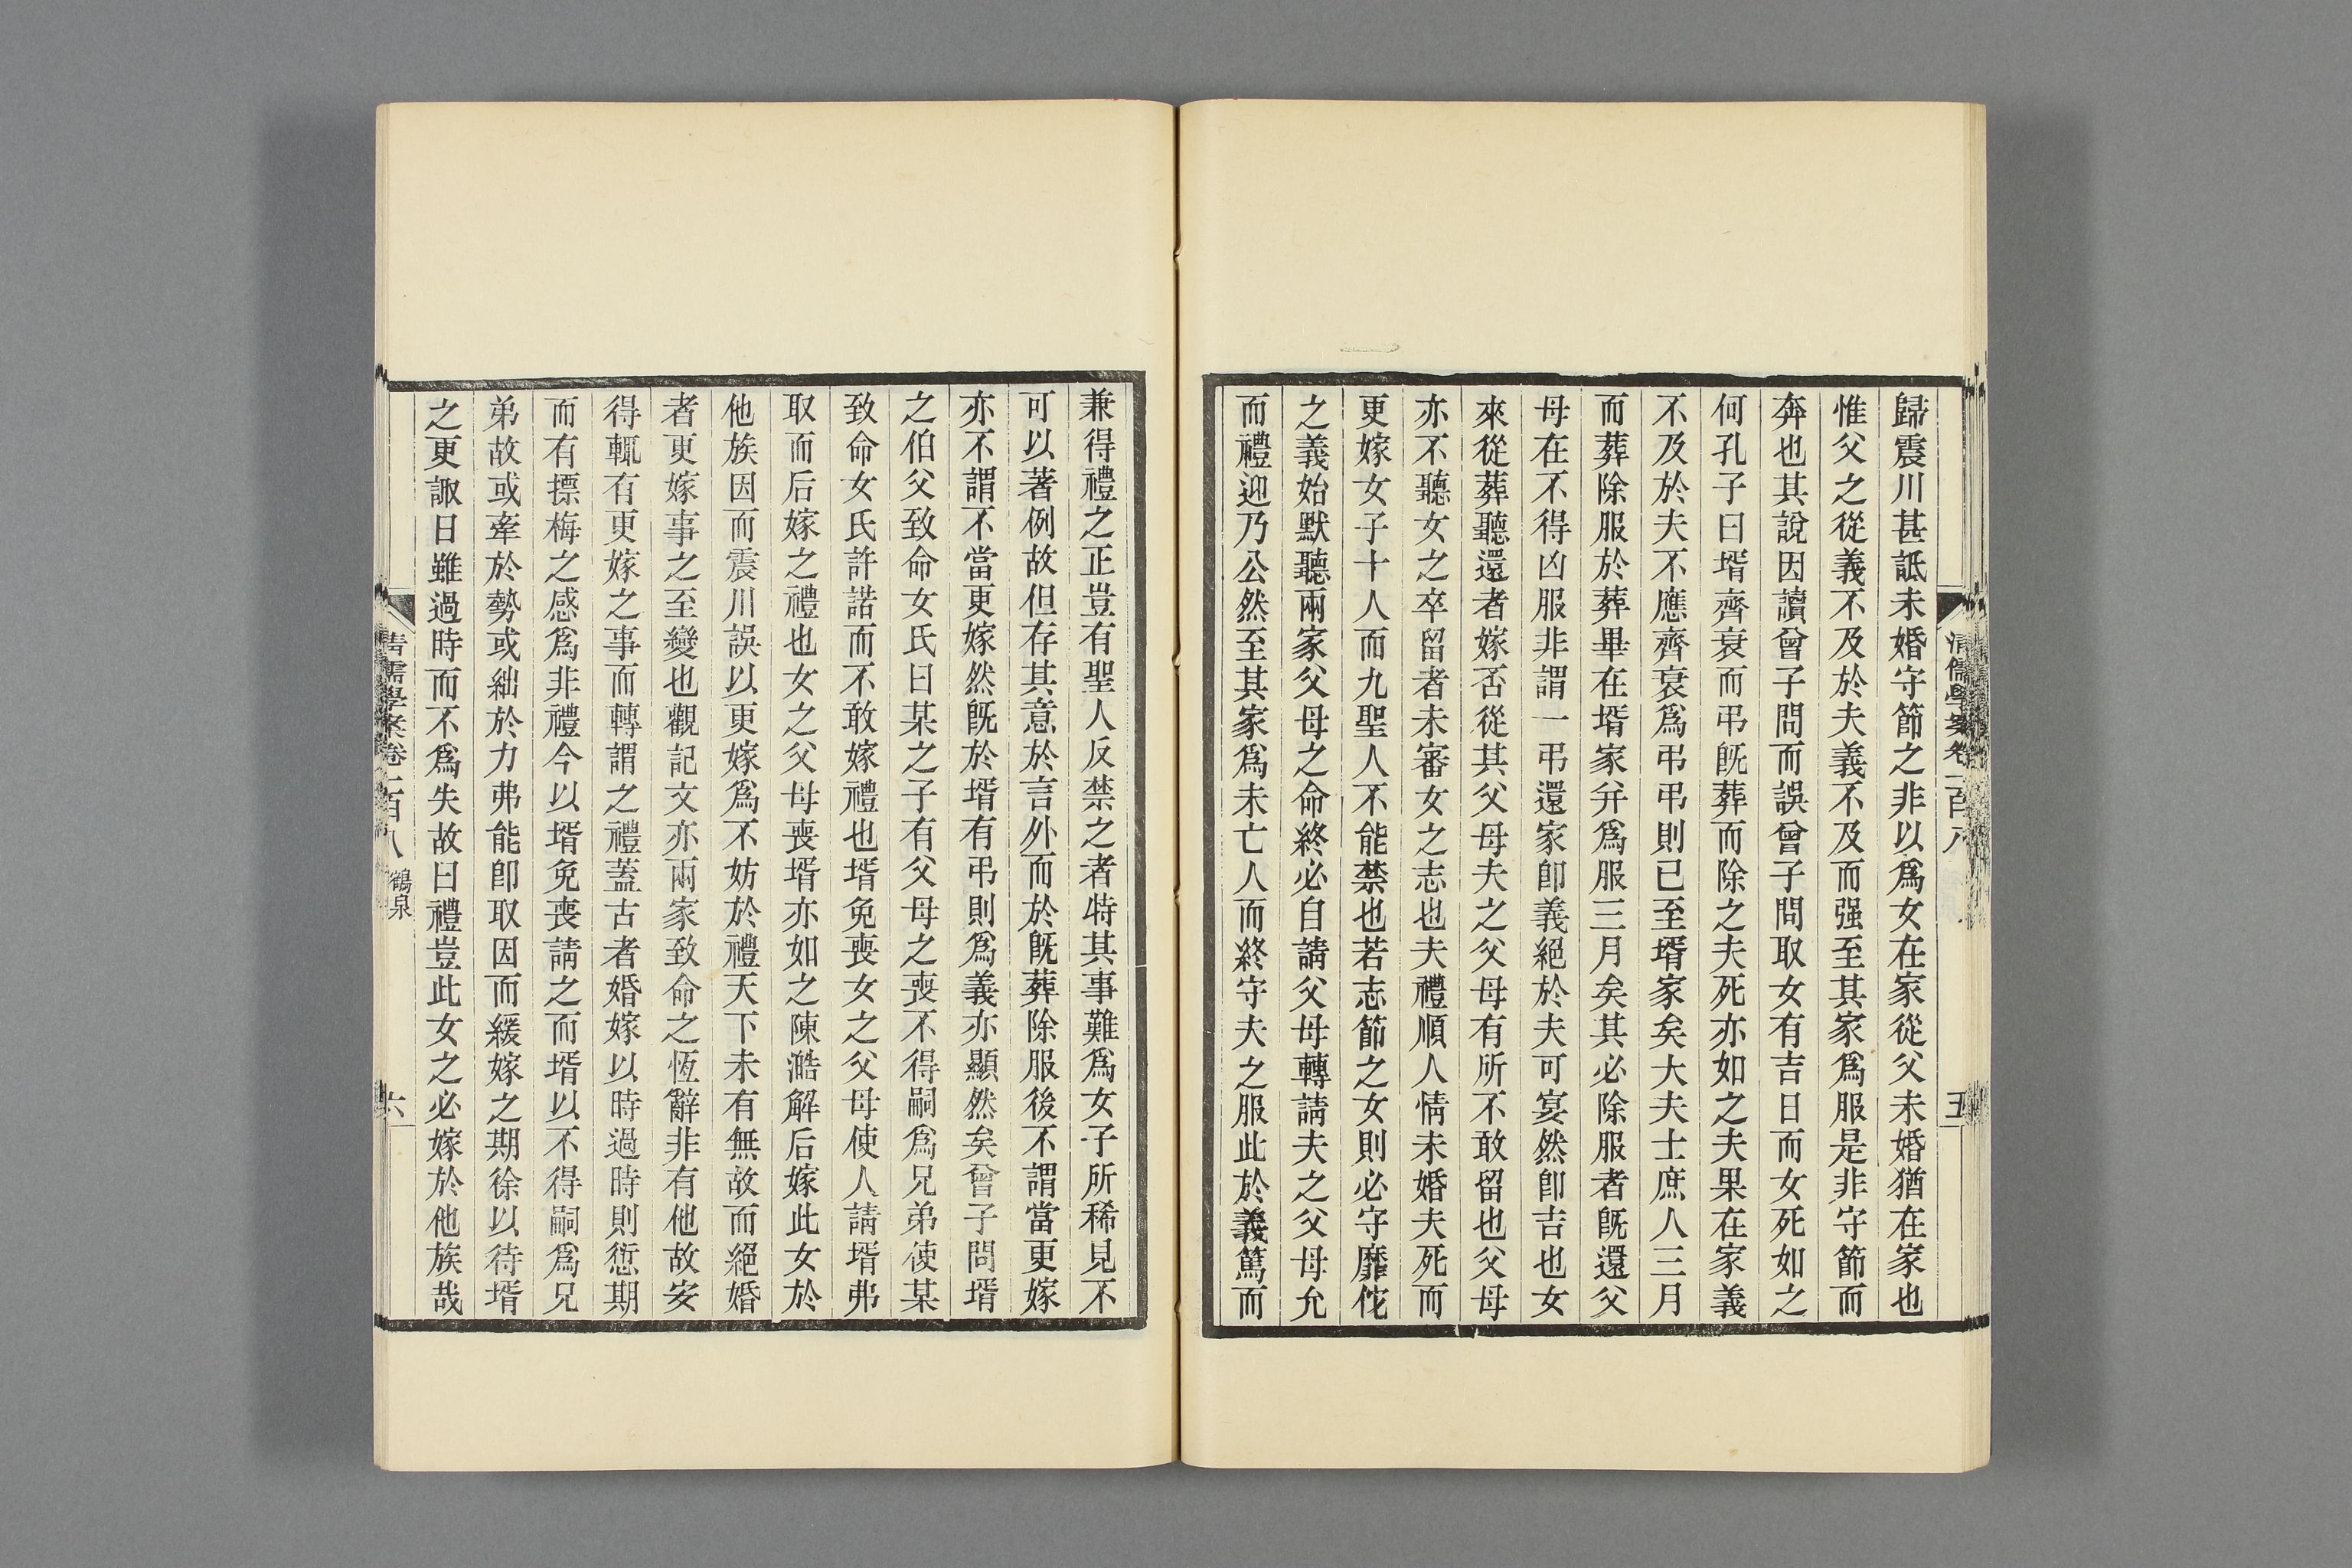 歸震川甚詆未婚守節之非以爲女在家從父未婚猶在家也
惟父之從義不及於夫義不及而强至其家爲服是非守節而
奔也其說因讀曾子問而誤曾子問取女有吉日而女死如之
何孔子曰壻齊衰而弔旣葬而除之夫死亦如之夫果在家義
不及於夫不應齊衰爲弔弔則已至壻家矣大夫士庶人三月
而葬除服於葬畢在壻家幷爲服三月矣其必除服者旣還父
母在不得凶服非謂一弔還家卽義絕於夫可宴然卽吉也女
來從葬聽還者嫁否從其父母夫之父母有所不敢留也父母
亦不聽女之卒留者未審女之志也夫禮順人情未婚夫死而
更嫁女子十人而九聖人不能禁也若志節之女則必守靡佗
之義始默聽兩家父母之命終必自請父母轉請夫之父母允
而禮迎乃公然至其家爲未亡人而終守夫之服此於義篤而
清儒學案卷一百八
五
兼得禮之正豈有聖人反禁之者特其事難爲女子所稀見不
可以著例故但存其意於言外而於旣葬除服後不謂當更嫁
亦不謂不當更嫁然旣於壻有弔則爲義亦顯然矣曾子問壻
之伯父致命女氏曰某之子有父母之喪不得嗣爲兄弟使某
致命女氏許諾而不敢嫁禮也壻免喪女之父母使人請壻弗
取而后嫁之禮也女之父母喪壻亦如之陳澔解后嫁此女於
他族因而震川誤以更嫁爲不妨於禮天下未有無故而絕婚
者更嫁事之至變也觀記文亦兩家致命之恆辭非有他故安
得輒有更嫁之事而轉謂之禮蓋古者婚嫁以時過時則愆期
而有摽梅之感爲非禮今以壻免喪請之而壻以不得嗣爲兄
弟故或牽於勢或絀於力弗能卽取因而緩嫁之期徐以待壻
之更諏日雖過時而不爲失故曰禮豈此女之必嫁於他族哉
清儒學案卷一百八 鶴泉
六